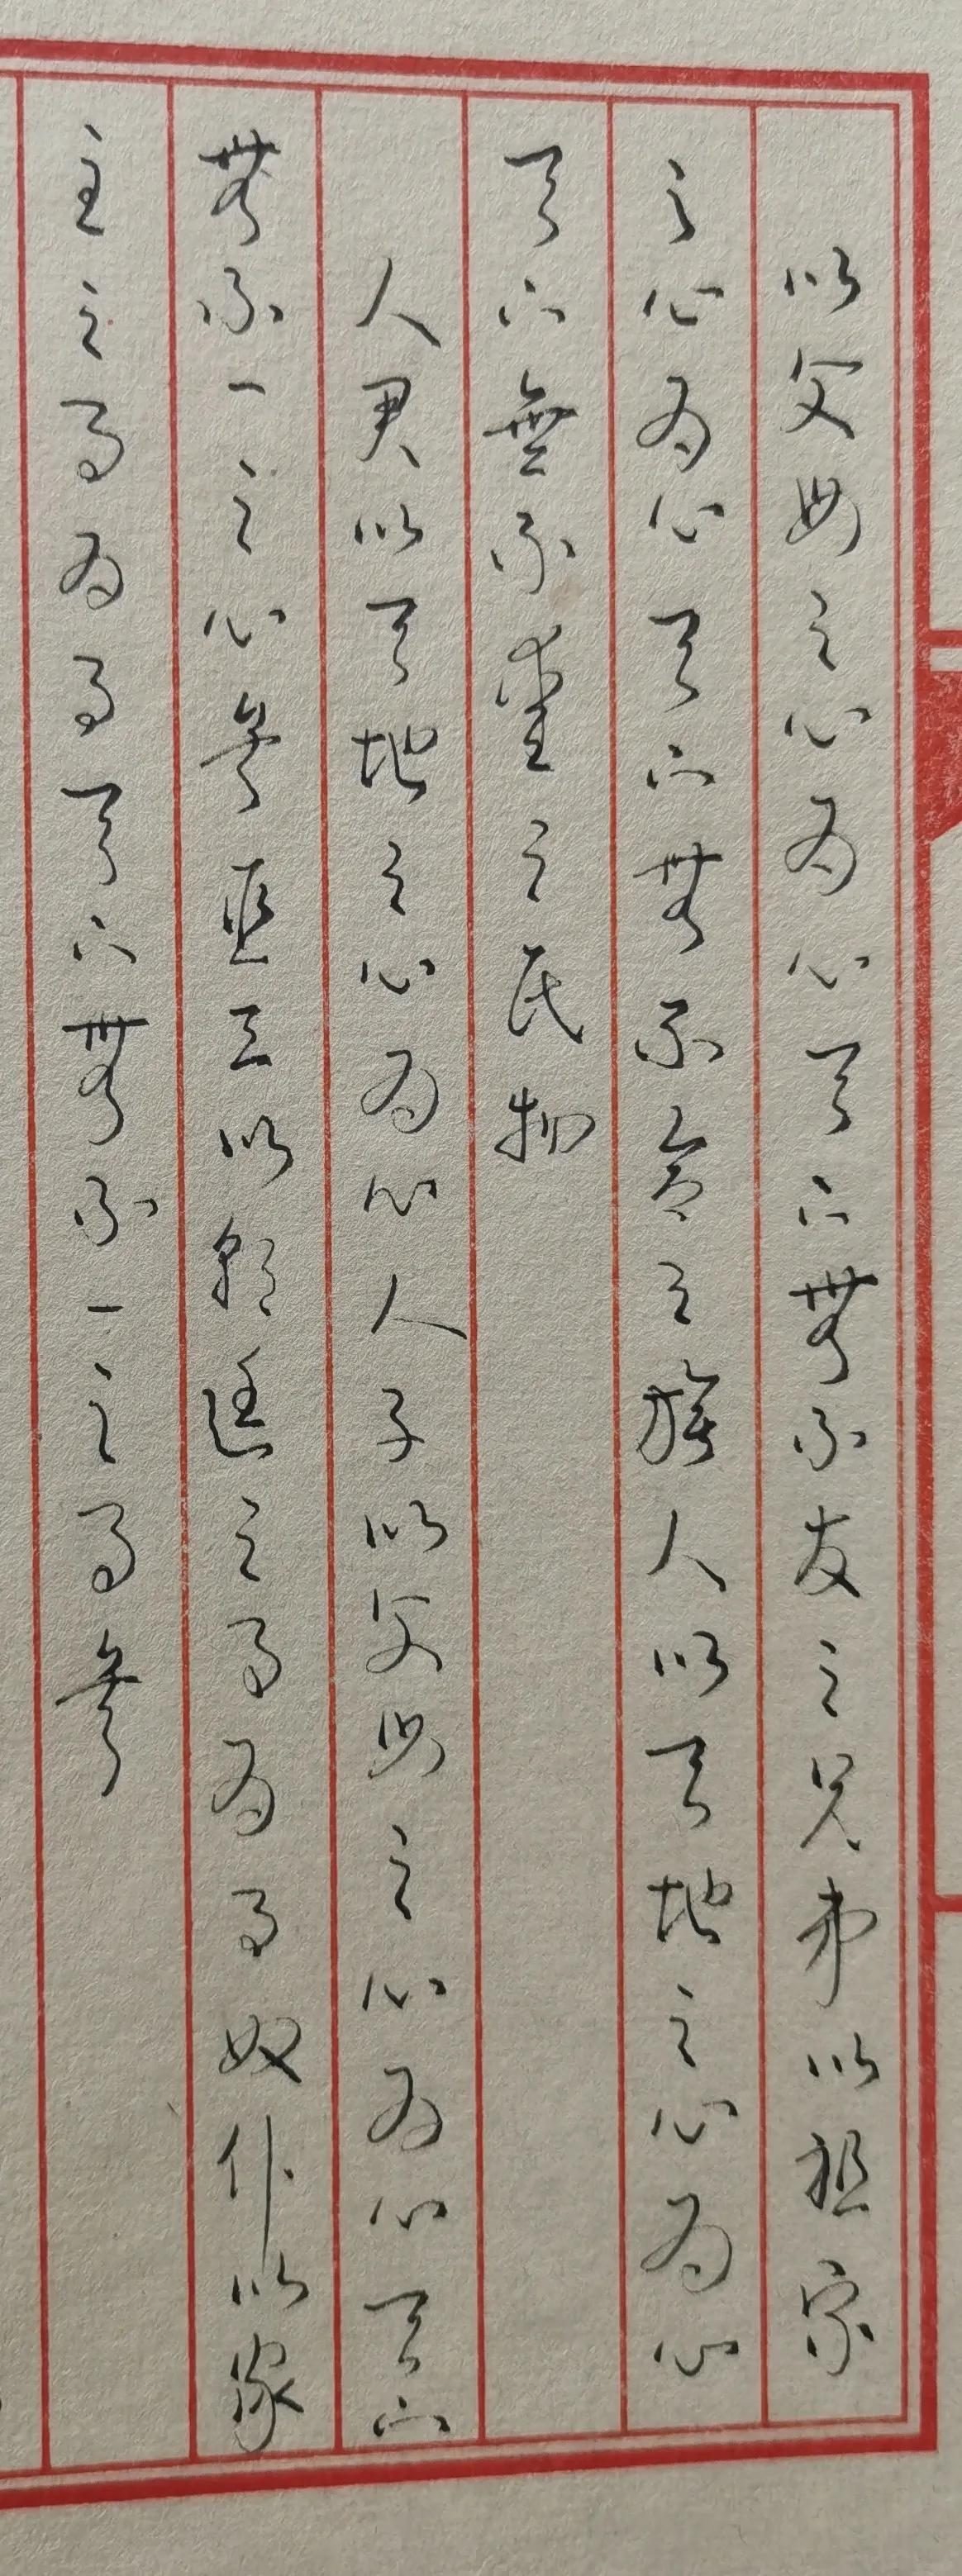 以父母之心為心天下無不友之兄弟以祖宗
之心為心天下無不之族人以天地之心為心
天下無不愛之民物
人君以天地之心為心人子以父母之心為心天下
無不一之心矣臣工以朝廷之事為事奴仆以家
主之事為事天下無不一之事矣